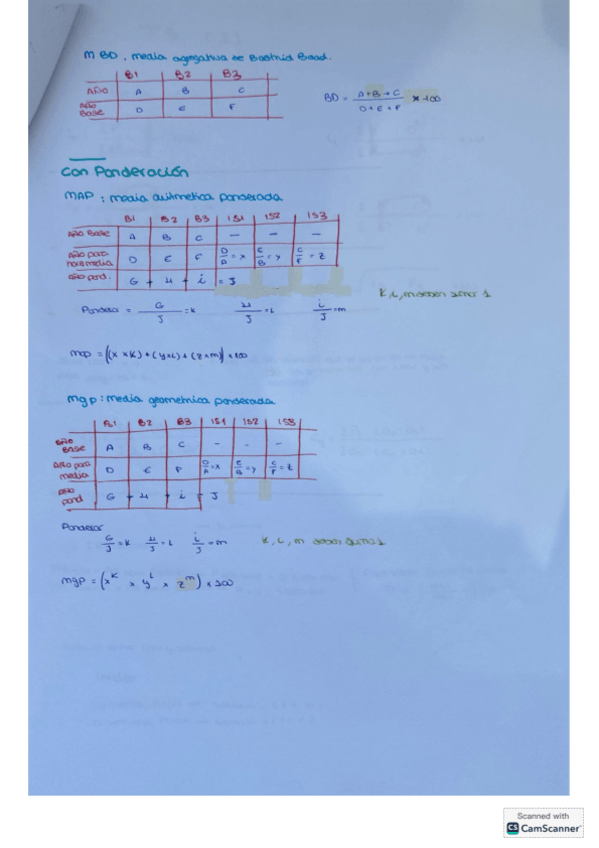 M BD, media agregativa de Bradstreet
B1 B2 B3
AÑO A B C
AÑO Base D E F
BD = A+B+C / D+E+F × 100
Con Ponderación
MAP : media aritmetica ponderada
B1 B2 B3 IS1 IS2 IS3
Año Base A B C - - -
Año para media D E F D/A = x E/B = y C/F = z
año pond. G + H + i = J
Ponderar = G/J = K H/J = L i/J = m
K, L, m deben sumar 1
map = ((x × K) + (y × L) + (z × m)) × 100
mgp : media geometrica ponderada
B1 B2 B3 IS1 IS2 IS3
Año Base A B C - - -
Año para media D E F D/A = x E/B = y C/F = z
año pond G + H + i = J
Ponderar
G/J = K H/J = L i/J = m K, L, m deben sumar 1
mgp = (x^K × y^L × z^m) × 100
Scanned with
CS CamScanner